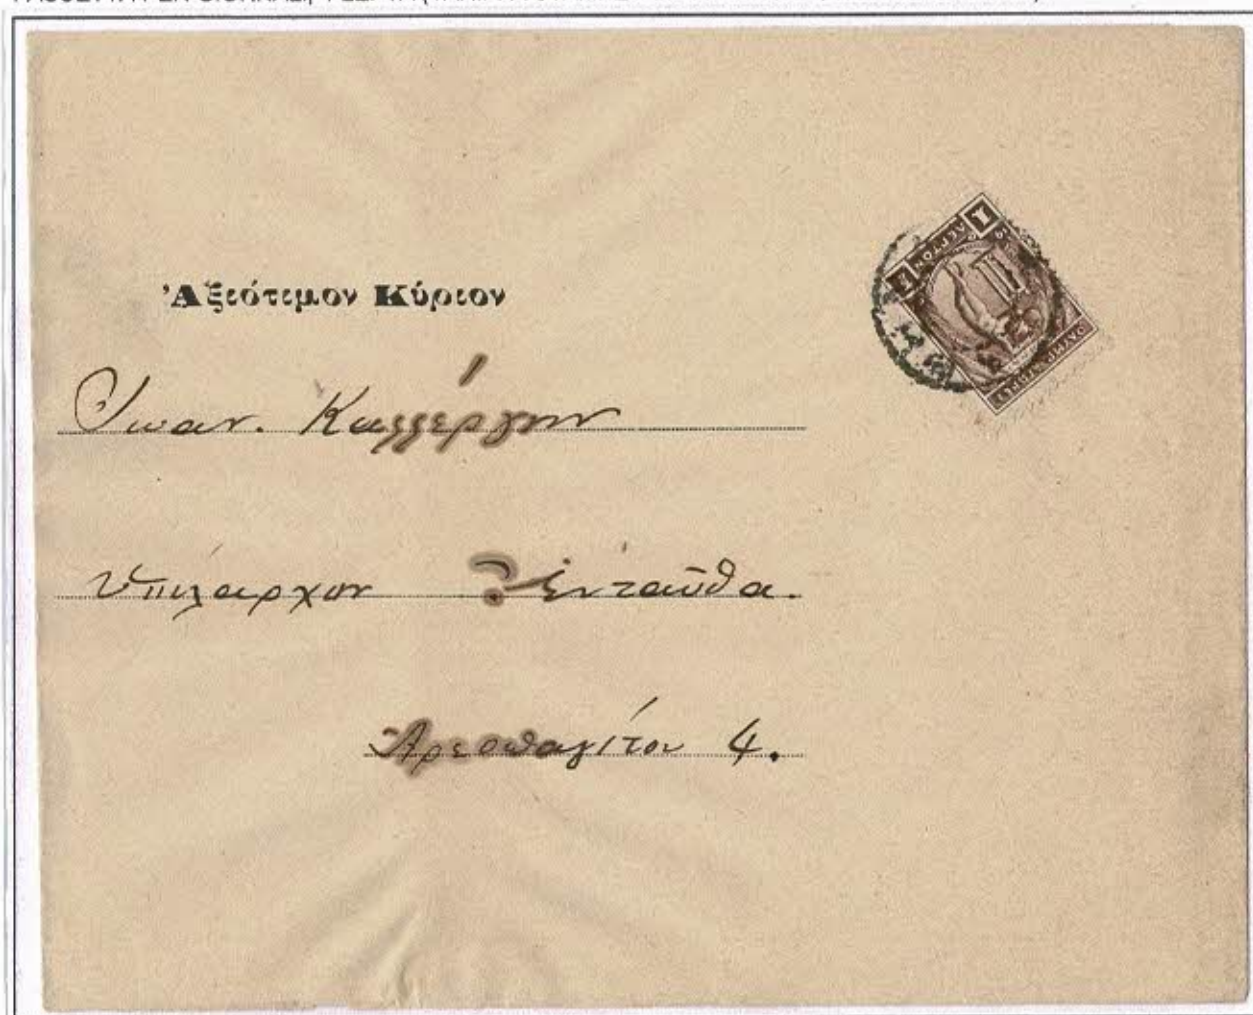 Ἀξιότιμον Κύριον
Ἰωαν. Καλλέργην
Ὑπίλαρχον Ἐνταῦθα.
Ἀρεοπαγίτου 4.
1 ΛΕΠΤΟΝ 1